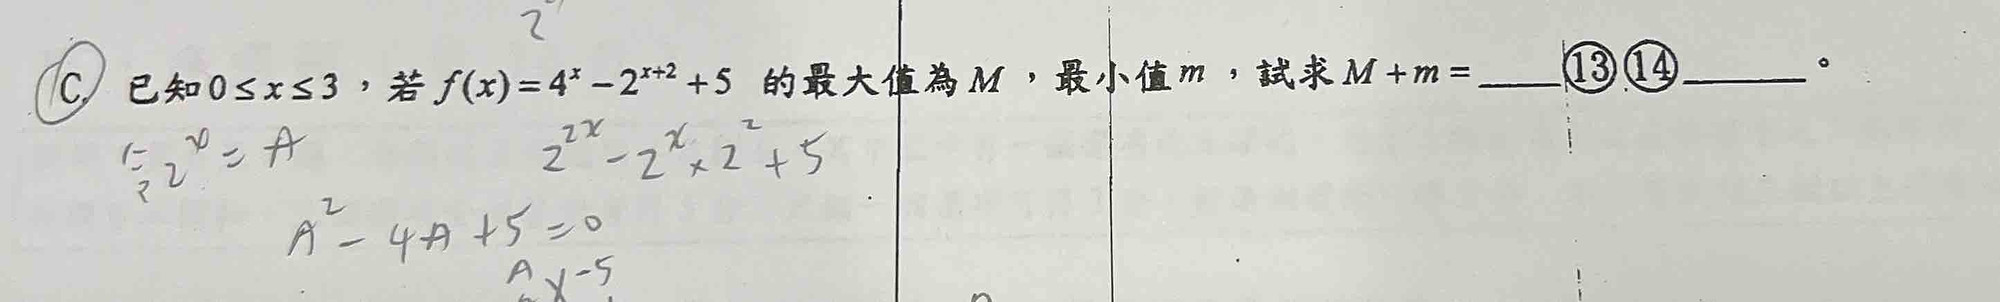 2
C. 已知 0 ≤ x ≤ 3，若 f(x) = 4^x − 2^{x+2} + 5 的最大值為 M，最小值 m，試求 M + m = ____⑬⑭____。
2^x = A 2^{2x} - 2^x × 2^2 + 5
A^2 - 4A + 5 = 0
A -5